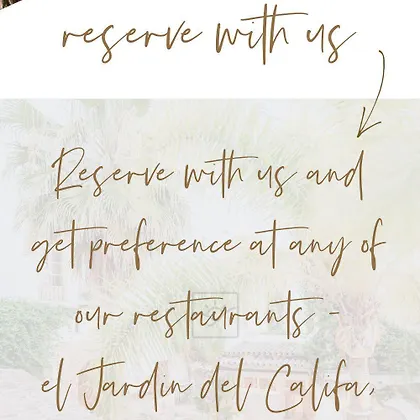 reserve with us
Reserve with us and
get preference at any of
our restaurants -
el Jardin del Califa,